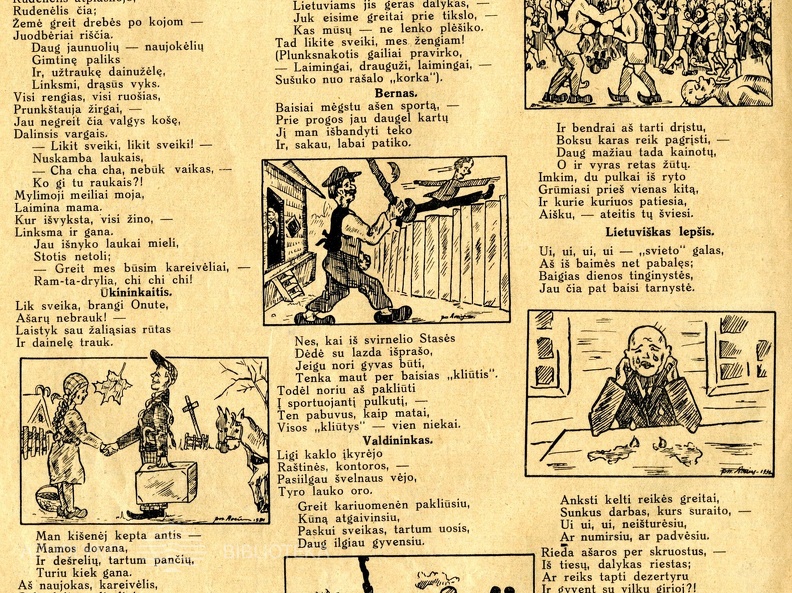 Rudenėlis čia;
Žemė greit drebės po kojom —
Juodbėriai riščia.
Daug jaunuolių — naujokėlių
Gimtinę paliks
Ir, užtraukę dainužėlę,
Linksmi, drąsūs vyks.
Visi rengias, visi ruošias,
Prunkštauja žirgai, —
Jau negreit čia valgys košę,
Dalinsis vargais.
— Likit sveiki, likit sveiki! —
Nuskamba laukais,
— Cha cha cha, nebūk vaikas, —
Ko gi tu raukais?!
Mylimoji meiliai moja,
Laimina mama.
Kur išvyksta, visi žino, —
Linksma ir gana.
Jau išnyko laukai mieli,
Stotis netoli;
— Greit mes būsim kareivėliai, —
Ram-ta-drylia, chi chi chi!
Ūkininkaitis.
Lik sveika, brangi Onute,
Ašarų nebrauk! —
Laistyk sau žaliąsias rūtas
Ir dainelę trauk.
Man kišenėj kepta antis —
Mamos dovana,
Ir dešrelių, tartum pančių,
Turiu kiek gana.
Aš naujokas, kareivėlis,
Lietuviams jis geras dalykas, —
Juk eisime greitai prie tikslo, —
Kas mūsų — ne lenko plėšiko.
Tad likite sveiki, mes žengiam!
(Plunksnakotis gailiai pravirko,
— Laimingai, drauguži, laimingai, —
Sušuko nuo rašalo „korka“).
Bernas.
Baisiai mėgstu ašen sportą, —
Prie progos jau daugel kartų
Jį man išbandyti teko
Ir, sakau, labai patiko.
Nes, kai iš svirnelio Stasės
Dėdė su lazda išprašo,
Jeigu nori gyvas būti,
Tenka maut per baisias „kliūtis“.
Todėl noriu aš pakliūti
Į sportuojantį pulkutį, —
Ten pabuvus, kaip matai,
Visos „kliūtys“ — vien niekai.
Valdininkas.
Ligi kaklo įkyrėjo
Raštinės, kontoros, —
Pasiilgau švelnaus vėjo,
Tyro lauko oro.
Greit kariuomenėn pakliūsiu,
Kūną atgaivinsiu,
Paskui sveikas, tartum uosis,
Daug ilgiau gyvensiu.
Ir bendrai aš tarti drįstu,
Boksu karas reik pagrįsti, —
Daug mažiau tada kainotų,
O ir vyras retas žūtų.
Imkim, du pulkai iš ryto
Grūmiasi prieš vienas kitą,
Ir kurie kuriuos patiesia,
Aišku, — ateitis tų šviesi.
Lietuviškas lepšis.
Ui, ui, ui, ui — „svieto“ galas,
Aš iš baimės net pabalęs;
Baigias dienos tinginystės,
Jau čia pat baisi tarnystė.
Anksti kelti reikės greitai,
Sunkus darbas, kurs suraito, —
Ui ui, ui, neišturėsiu,
Ar numirsiu, ar padvėsiu.
Rieda ašaros per skruostus, —
Iš tiesų, dalykas riestas;
Ar reiks tapti dezertyru
Ir gyvent su vilkų girioj?!